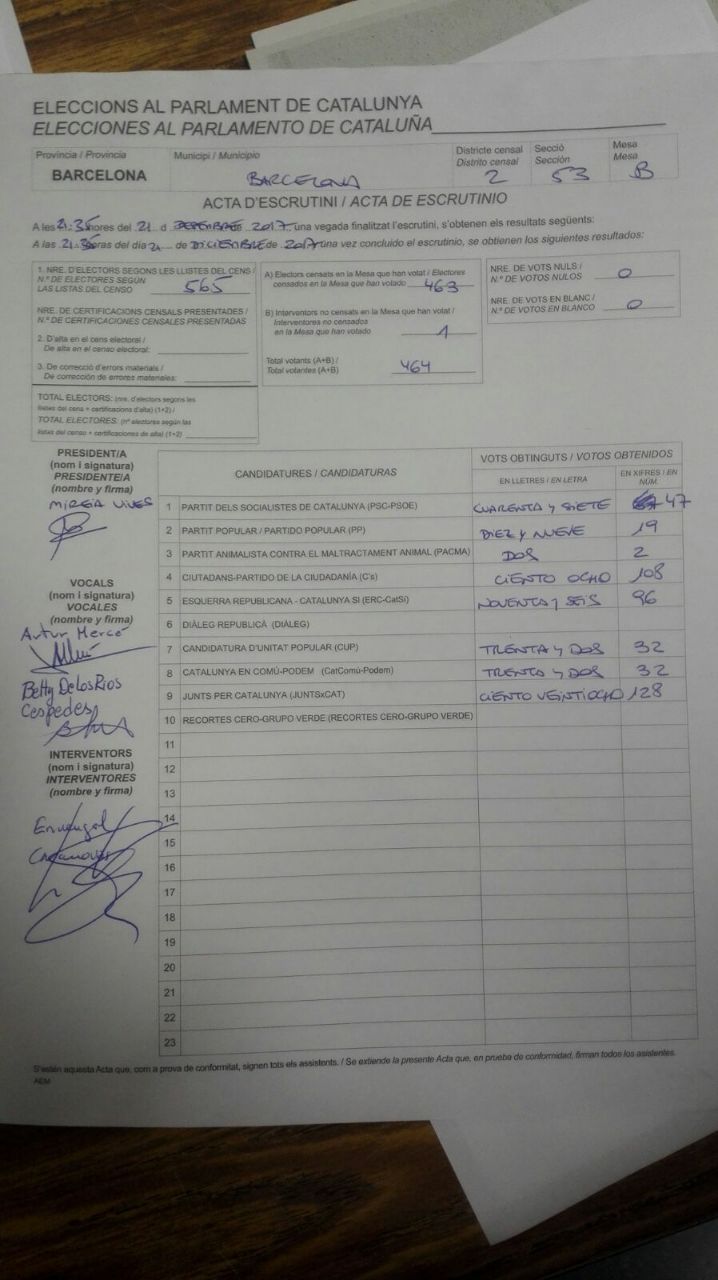 ELECCIONS AL PARLAMENT DE CATALUNYA
ELECCIONES AL PARLAMENTO DE CATALUÑA
Provincia / Provincia
BARCELONA
Municipi / Municipio
BARCELONA
Districte censal
Distrito censal
2
Secció
Sección
53
Mesa
Mesa
B
ACTA D'ESCRUTINI / ACTA DE ESCRUTINIO
A les 21:35 hores del 21 d 2017, una vegada finalitzat l'escrutini, s'obtenen els resultats següents:
A las 21:35 horas del día 21 de DICIEMBRE de 2017 una vez concluido el escrutinio, se obtienen los siguientes resultados:
1. NRE. D'ELECTORS SEGONS LES LLISTES DEL CENS /
N.º DE ELECTORES SEGÚN
LAS LISTAS DEL CENSO 565
NRE. DE CERTIFICACIONS CENSALS PRESENTADES /
N.º DE CERTIFICACIONES CENSALES PRESENTADAS
2. D'alta en el cens electoral /
De alta en el censo electoral:
3. De correcció d'errors materials /
De corrección de errores materiales:
TOTAL ELECTORS: (nre. d'electors segons les
llistes del cens + certificacions d'alta) (1+2) /
TOTAL ELECTORES: (nº electores según las
listas del censo + certificaciones de alta) (1+2)
A) Electors censats en la Mesa que han votat / Electores
censados en la Mesa que han votado 463
B) Interventors no censats en la Mesa que han votat /
Interventores no censados
en la Mesa que han votado 1
Total votants (A+B) /
Total votantes (A+B) 464
NRE. DE VOTS NULS /
N.º DE VOTOS NULOS 0
NRE. DE VOTS EN BLANC /
N.º DE VOTOS EN BLANCO 0
PRESIDENT/A
(nom i signatura)
PRESIDENTE/A
(nombre y firma)
MIREIA VIVES
VOCALS
(nom i signatura)
VOCALES
(nombre y firma)
Artur Mercé
Betty De los Rios
Cespedes
INTERVENTORS
(nom i signatura)
INTERVENTORES
(nombre y firma)
CANDIDATURES / CANDIDATURAS
VOTS OBTINGUTS / VOTOS OBTENIDOS
EN LLETRES / EN LETRA
EN XIFRES / EN NÚM.
1 PARTIT DELS SOCIALISTES DE CATALUNYA (PSC-PSOE) CUARENTA y SIETE 47
2 PARTIT POPULAR / PARTIDO POPULAR (PP) DIEZ y NUEVE 19
3 PARTIT ANIMALISTA CONTRA EL MALTRACTAMENT ANIMAL (PACMA) DOS 2
4 CIUTADANS-PARTIDO DE LA CIUDADANÍA (C's) CIENTO OCHO 108
5 ESQUERRA REPUBLICANA - CATALUNYA SI (ERC-CatSí) NOVENTA y SEIS 96
6 DIÀLEG REPUBLICÀ (DIÀLEG)
7 CANDIDATURA D'UNITAT POPULAR (CUP) TRENTA y DOS 32
8 CATALUNYA EN COMÚ-PODEM (CatComú-Podem) TRENTA y DOS 32
9 JUNTS PER CATALUNYA (JUNTSxCAT) CIENTO VEINTIOCHO 128
10 RECORTES CERO-GRUPO VERDE (RECORTES CERO-GRUPO VERDE)
11
12
13
14
15
16
17
18
19
20
21
22
23
S'estén aquesta Acta que, com a prova de conformitat, signen tots els assistents. / Se extiende la presente Acta que, en prueba de conformidad, firman todos los asistentes.
AEM